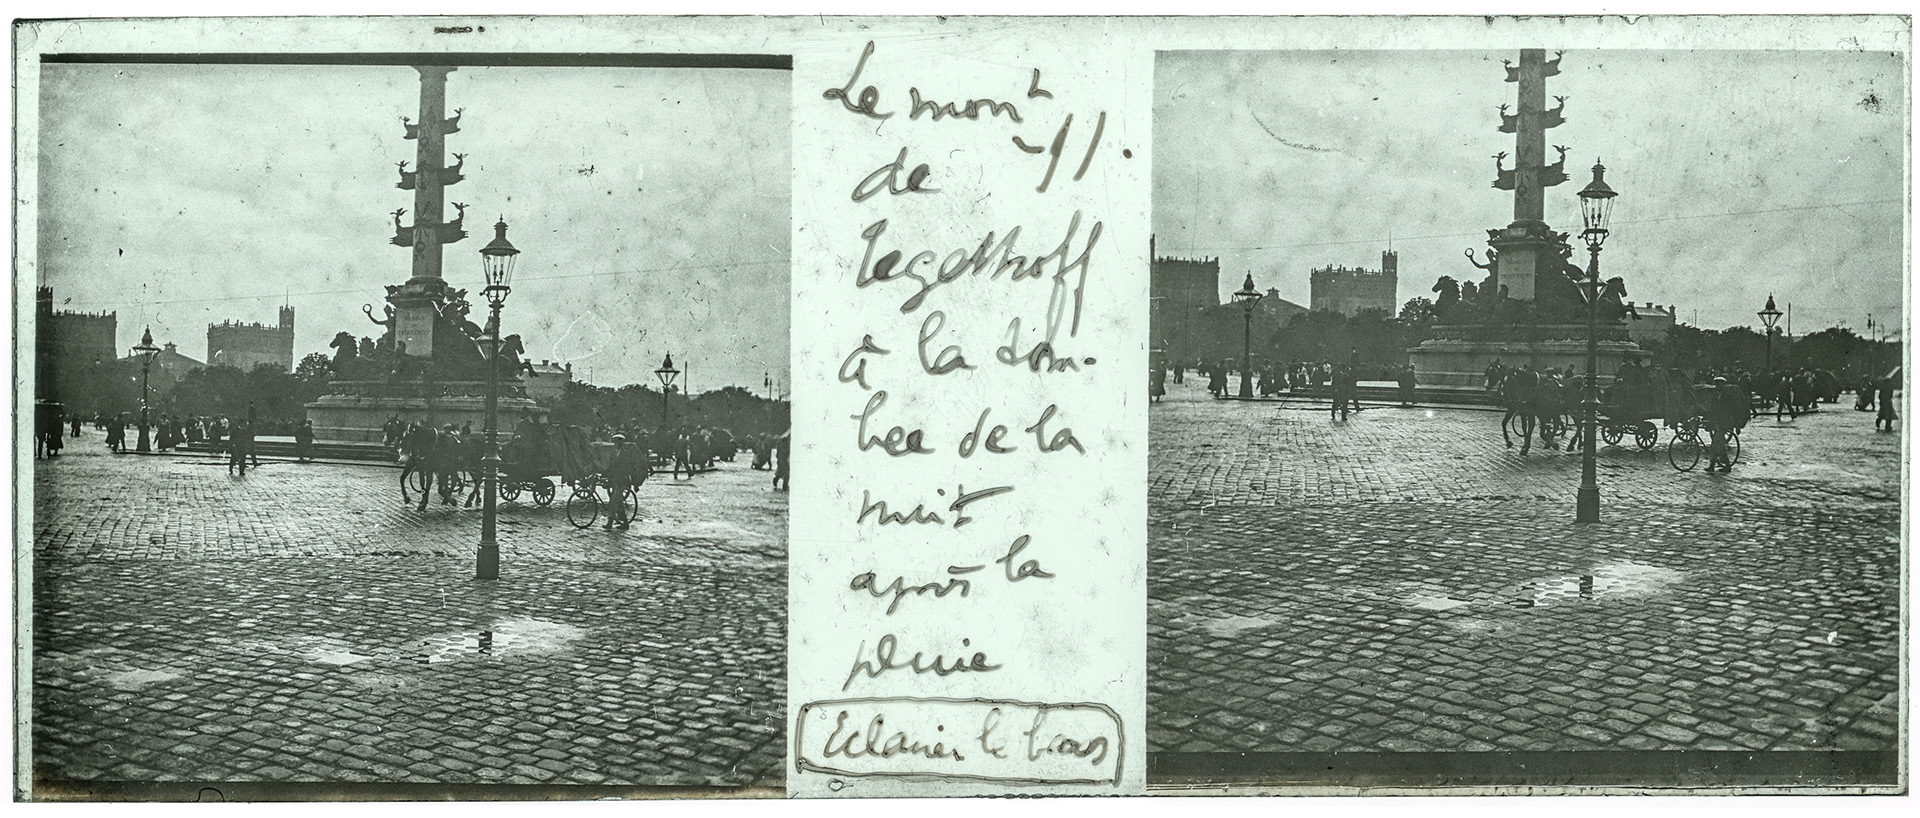 Le mont
de
Tegetthoff
à la tom-
bee de la
nuit
après la
pluie
Eclairer le bas